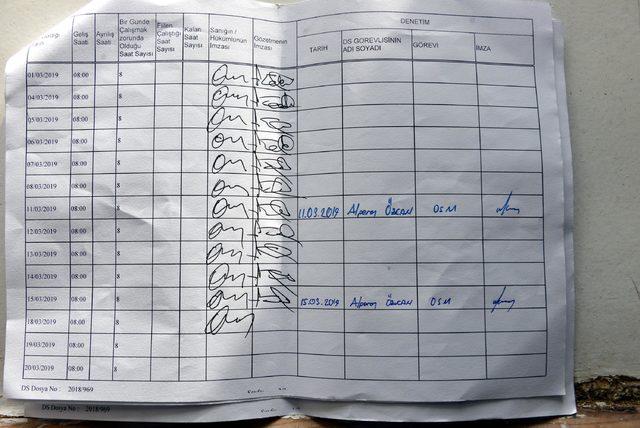 DENETİM
Geliş Saati
Ayrılış Saati
Bir Günde Çalışmak zorunda Olduğu Saat Sayısı
Fiilen Çalıştığı Saat Sayısı
Kalan Saat Sayısı
Sanığın / Hükümlünün İmzası
Gözetmenin İmzası
TARİH
DS GÖREVLİSİNİN ADI SOYADI
GÖREVİ
İMZA
01/03/2019 08:00 8
04/03/2019 08:00 8
05/03/2019 08:00 8
06/03/2019 08:00 8
07/03/2019 08:00 8
08/03/2019 08:00 8
11/03/2019 08:00 8 11.03.2019 Alperen ÖZCAN DSM
12/03/2019 08:00 8
13/03/2019 08:00 8
14/03/2019 08:00 8
15/03/2019 08:00 8 15.03.2019 Alperen ÖZCAN DSM
18/03/2019 08:00 8
19/03/2019 08:00 8
20/03/2019 08:00 8
DS Dosya No : 2018/969
DS Dosya No : 2018/969